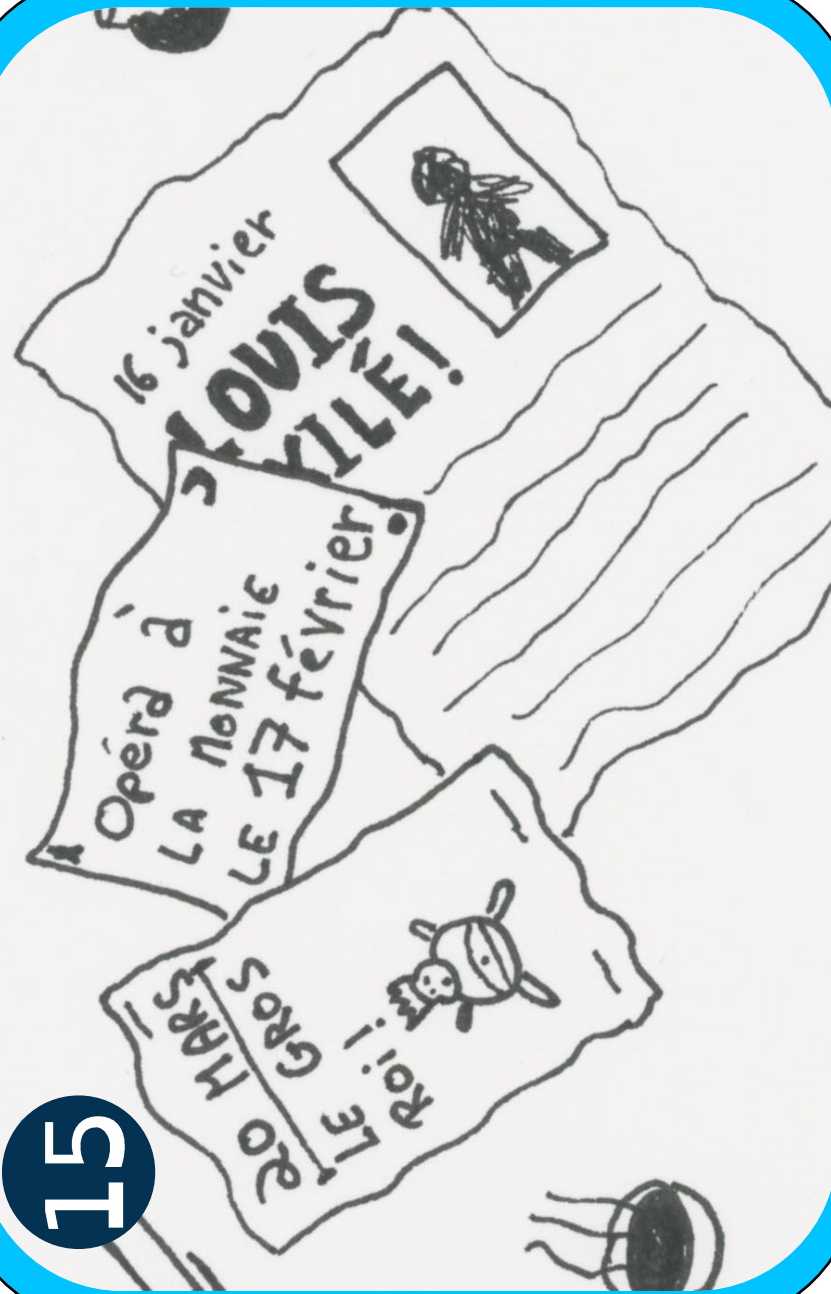 16 janvier
LOUIS
XILÉ!
Opéra à
LA MONNAIE
LE 17 février
20 MARS
LE GROS
Roi!
15